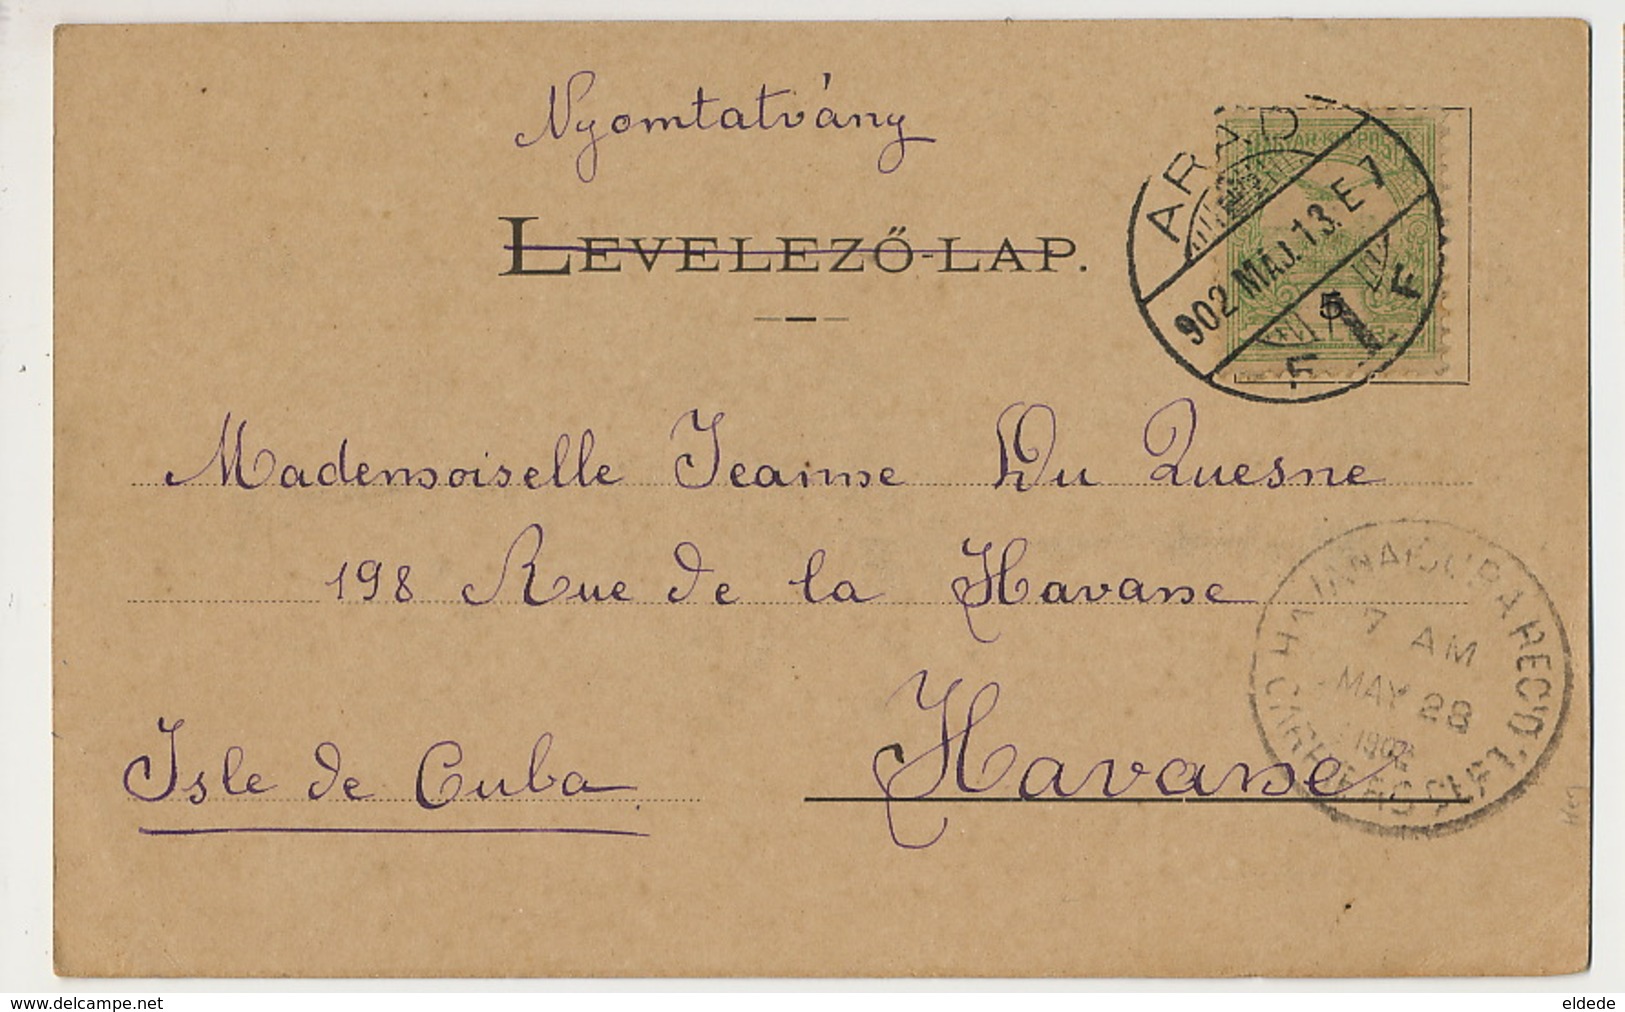 Nyomtatvány
LEVELEZŐ-LAP.
ARAD
902 MÁJ. 13. E 7
5
Mademoiselle Jeanne Du Quesne
198 Rue de la Havane
Havane
Isle de Cuba
HAVANA, CUBA REC'D.
7 AM
MAY 28
1902
eldede
www.delcampe.net